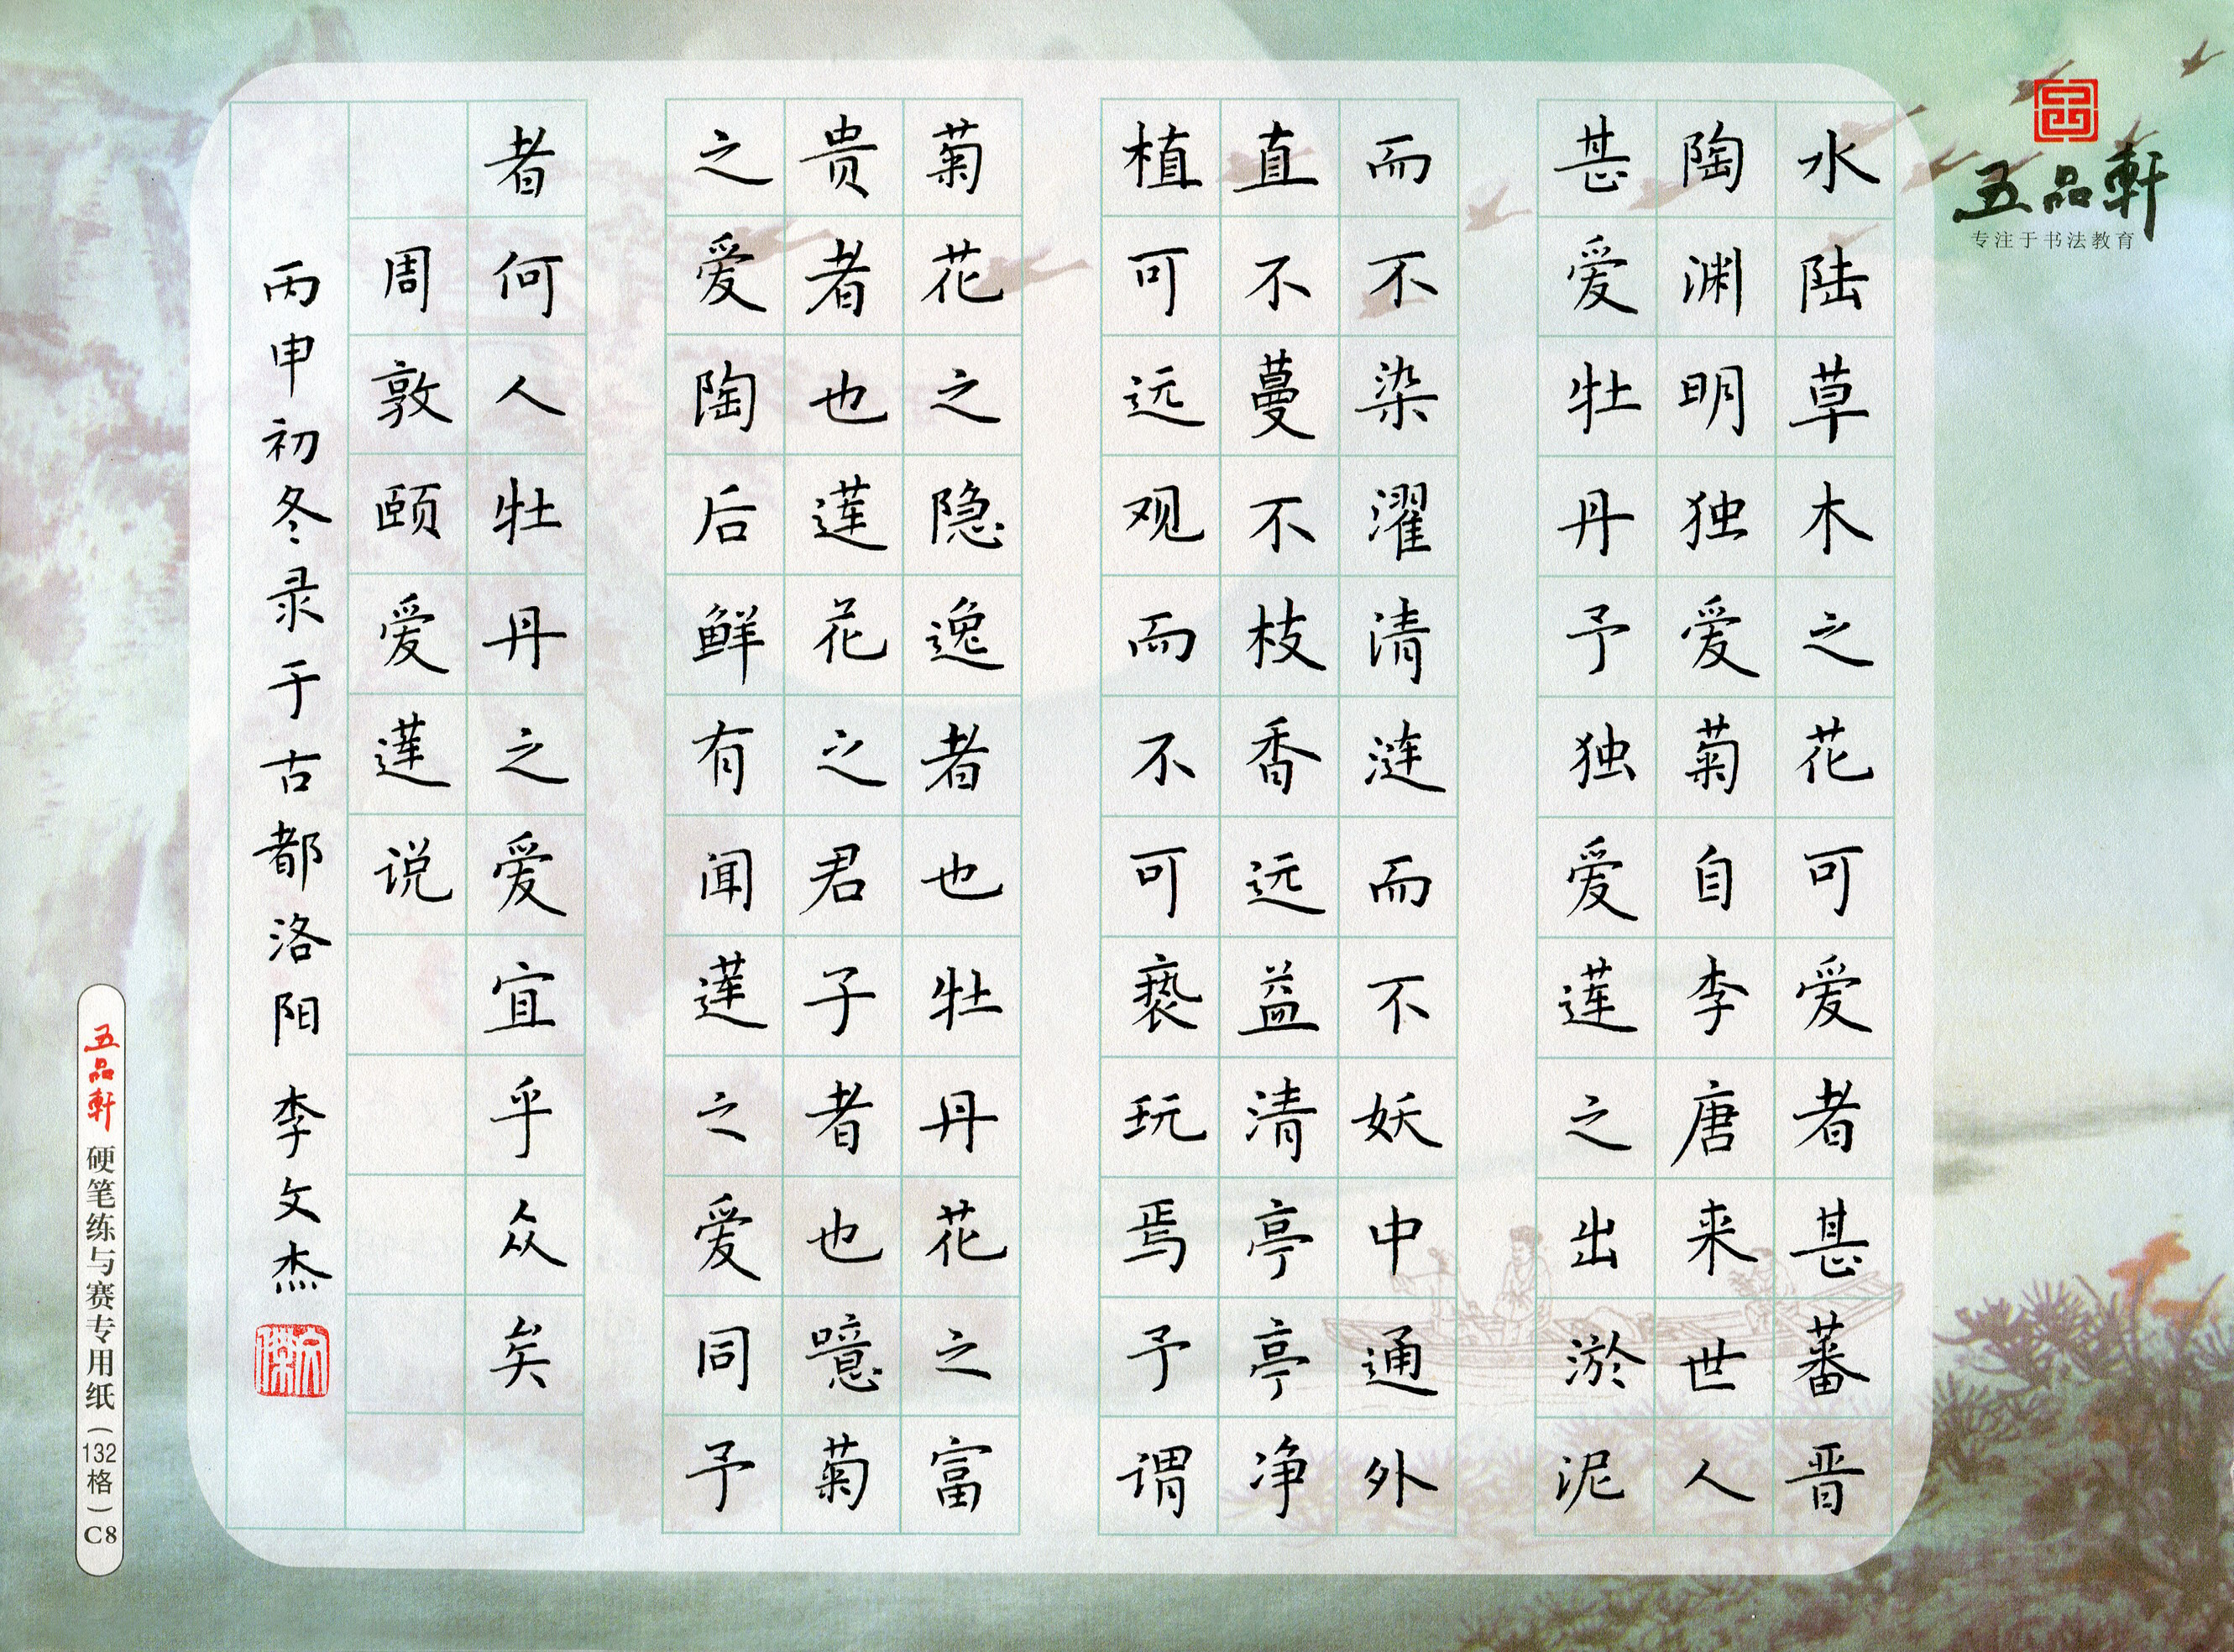 水陆草木之花可爱者甚蕃晋
陶渊明独爱菊自李唐来世人
甚爱牡丹予独爱莲之出淤泥
而不染濯清涟而不妖中通外
直不蔓不枝香远益清亭亭净
植可远观而不可亵玩焉予谓
菊花之隐逸者也牡丹花之富
贵者也莲花之君子者也噫菊
之爱陶后鲜有闻莲之爱同予
者何人牡丹之爱宜乎众矣
周敦颐爱莲说
丙申初冬录于古都洛阳 李文杰
五品軒
专注于书法教育
五品軒 硬笔练与赛专用纸(132格)C8